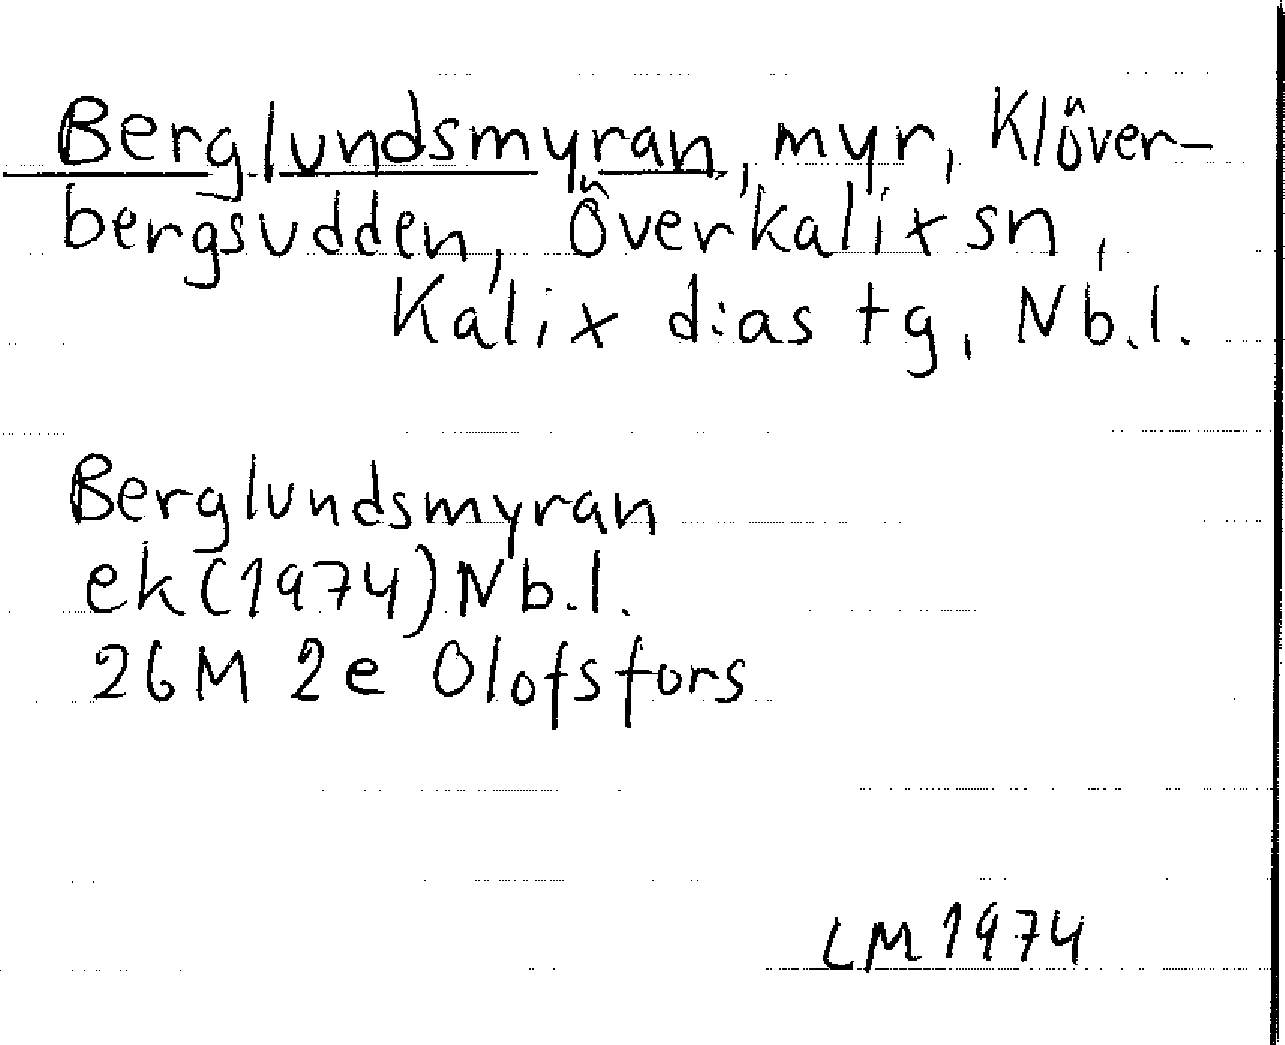 Berglundsmyran, myr, Klöver-
bergsudden, Överkalix sn,
Kalix dias tg, Nb.l.
Berglundsmyran
ek (1974) Nb.l.
26M 2e Olofsfors
LM 1974